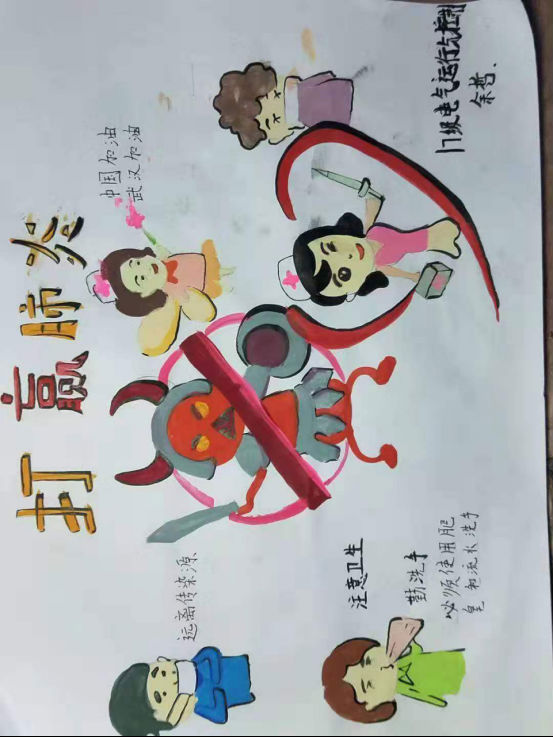 打赢肺炎
中国加油
武汉加油
远离传染源
注意卫生
勤洗手
必须使用肥
皂和流水洗手
17级电气运行与控制